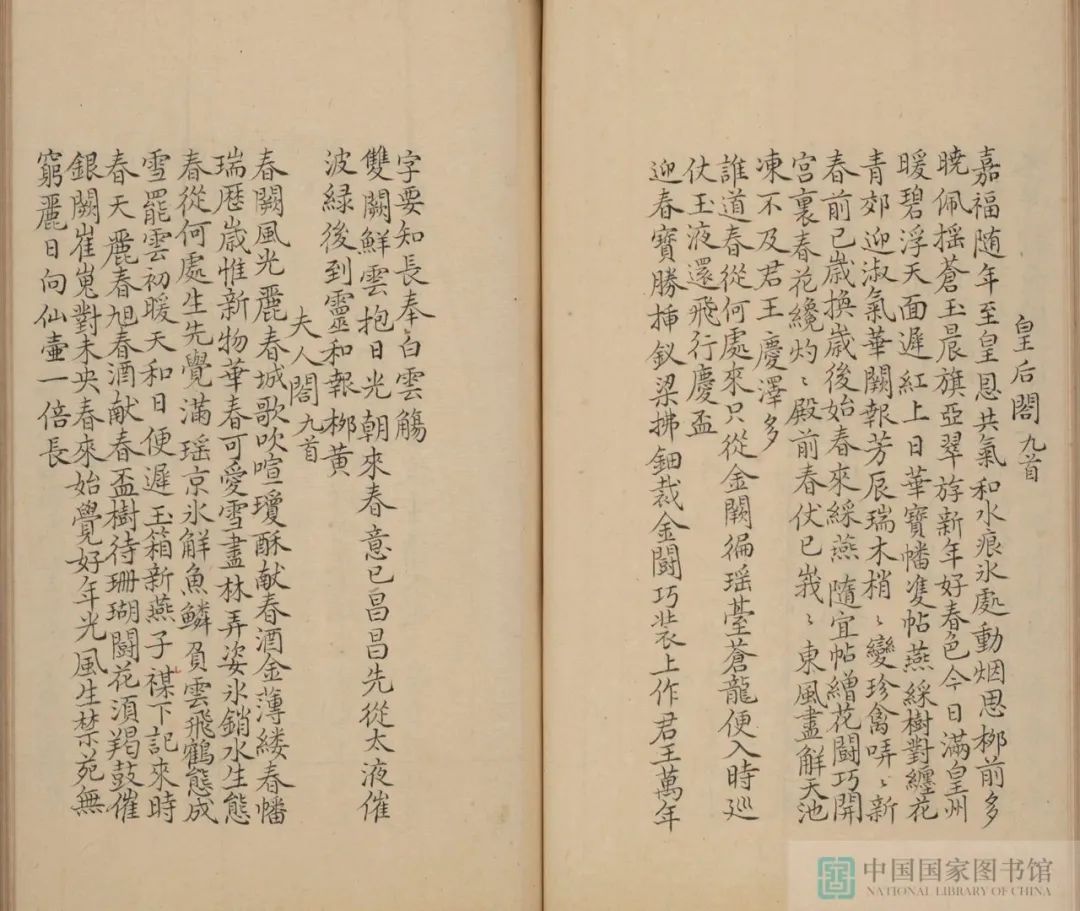 皇后閤九首
嘉福随年至皇恩共氣和水痕氷處動烟思栁前多
曉佩揺蒼玉晨旗亞翠斿新年好春色今日滿皇州
暖碧浮天面遲紅上日華寳幡雙帖燕綵樹對纒花
青郊迎淑氣華闕報芳辰瑞木梢〻變珍禽哢〻新
春前已歲換歲後始春來綵燕隨宜帖繒花闘巧開
宮裏春花纔灼〻殿前春仗已峩〻東風盡解天池
凍不及君王慶澤多
誰道春從何處來只從金闕徧瑶臺蒼龍便入時巡
仗玉液還飛行慶盃
迎春寳勝揷釵梁拂鈿裁金闘巧裝上作君王萬年
字要知長奉白雲觴
雙闕鮮雲抱日光朝來春意已昌昌先從太液催
波綠後到靈和報栁黄
夫人閤九首
春闕風光麗春城歌吹喧瓊酥献春酒金薄縷春幡
瑞歴歲惟新物華春可愛雪盡林弄姿氷銷水生態
春從何處生先覺滿瑶京氷解魚鱗負雲飛鶴態成
雪罷雲初暖天和日便遲玉箱新燕子禖下記來時
春天麗春旭春酒献春盃樹待珊瑚闘花須羯鼓催
銀闕崔嵬對未央春來始覺好年光風生禁苑無
窮麗日向仙壷一倍長
中国国家图书馆
NATIONAL LIBRARY OF CHINA